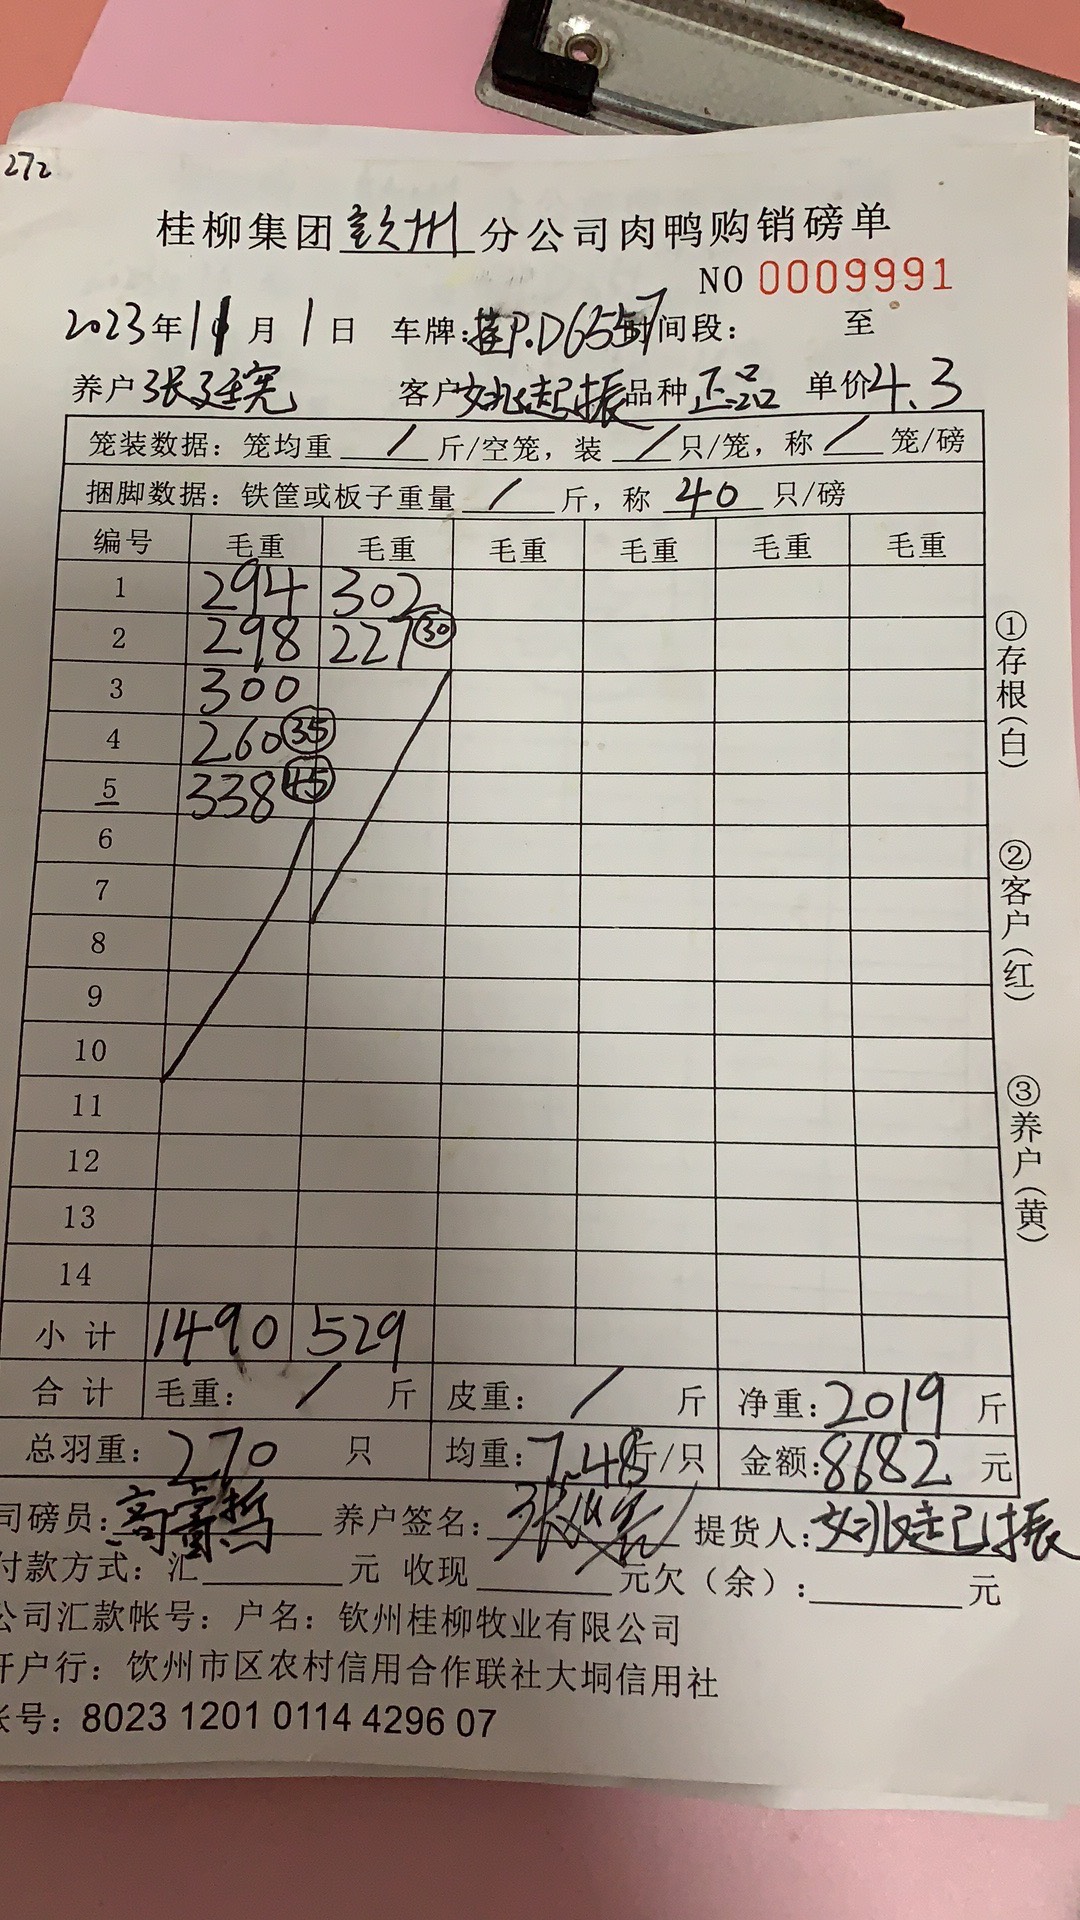 272
桂柳集团钦州分公司肉鸭购销磅单
NO 0009991
2023年11月1日 车牌:桂P.D6557时间段: 至
养户 张廷宪 客户姚起振 品种 正品 单价4.3
笼装数据: 笼均重 / 斤/空笼, 装 / 只/笼, 称 / 笼/磅
捆脚数据: 铁筐或板子重量 / 斤, 称 40 只/磅
编号 毛重 毛重 毛重 毛重 毛重 毛重
1 294 302
2 298 227 30
3 300
4 260 35
5 338 45
6
7
8
9
10
11
12
13
14
小计 1490 529
合计 毛重: / 斤 皮重: / 斤 净重: 2019 斤
总羽重: 270 只 均重: 7.48斤/只 金额: 8682 元
司磅员: 养户签名: 提货人: 姚起振
付款方式: 汇 元 收现 元欠(余): 元
公司汇款帐号: 户名: 钦州桂柳牧业有限公司
开户行: 钦州市区农村信用合作联社大垌信用社
帐号: 8023 1201 0114 4296 07
①存根(白)
②客户(红)
③养户(黄)